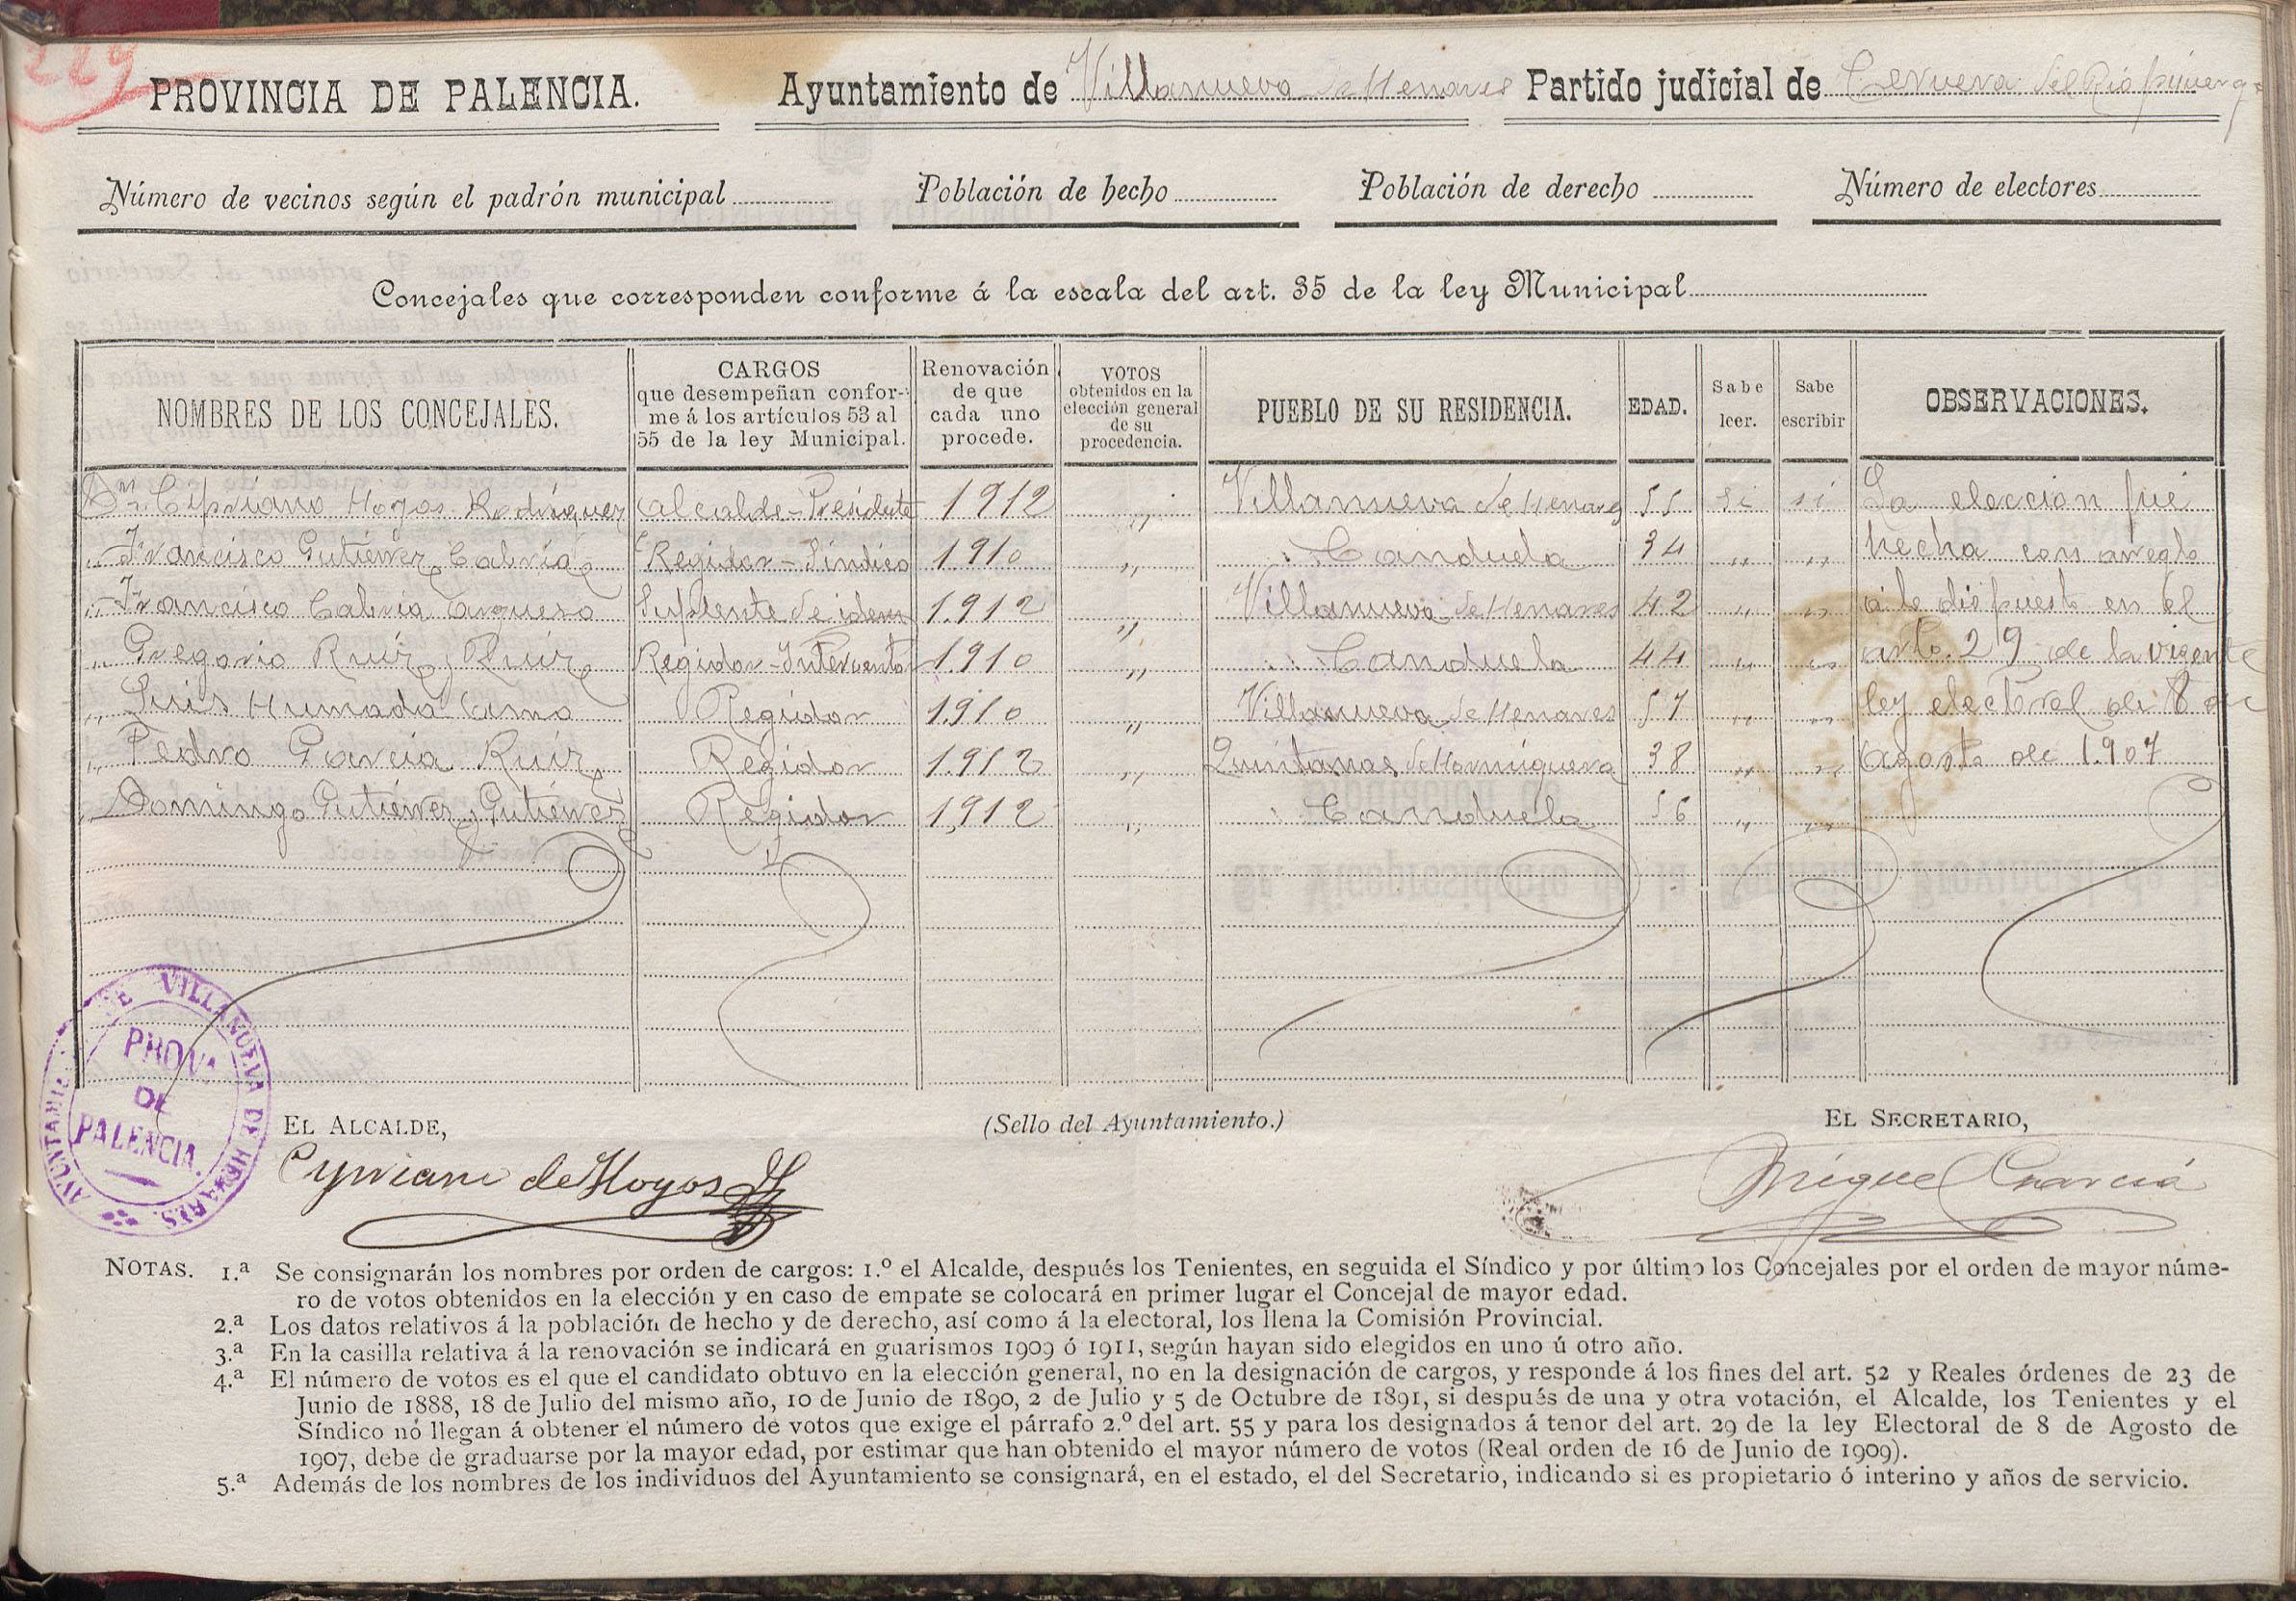 229
PROVINCIA DE PALENCIA. Ayuntamiento de Villanueva de Henares Partido judicial de Cervera del Rio Pisuerga
Número de vecinos según el padrón municipal Población de hecho Población de derecho Número de electores
Concejales que corresponden conforme á la escala del art. 35 de la ley Municipal
NOMBRES DE LOS CONCEJALES. CARGOS que desempeñan conforme á los artículos 53 al 55 de la ley Municipal. Renovación de que cada uno procede. VOTOS obtenidos en la elección general de su procedencia. PUEBLO DE SU RESIDENCIA. EDAD. Sabe leer. Sabe escribir OBSERVACIONES.
Dn. Cipriano Hoyos Rodríguez Alcalde-Presidente 1912 „ Villanueva de Henares 55 si si La eleccion fué
„ Francisco Gutiérrez Cabria Regidor-Síndico 1910 „ Canduela 34 „ „ hecha con arreglo
„ Francisco Cabria Suplente de idem 1912 „ Villanueva de Henares 42 „ „ a lo dispuesto en el
„ Gregorio Ruíz y Ruíz Regidor-Interventor 1910 „ Canduela 44 „ „ arto. 29 de la vigente
„ Luis Humada Regidor 1910 „ Villanueva de Henares 57 „ „ ley electoral de 8 de
„ Pedro García Ruíz Regidor 1912 „ Quintanas de Hormiguera 38 „ „ agosto de 1907
„ Domingo Gutiérrez y Gutiérrez Regidor 1912 „ Canduela 56 „ „
AYUNTAMIENTO DE VILLANUEVA DE HENARES.
PROVA
DE
PALENCIA.
EL ALCALDE, (Sello del Ayuntamiento.) EL SECRETARIO,
Cipriano de Hoyos Miguel García
NOTAS. 1.ª Se consignarán los nombres por orden de cargos: 1.º el Alcalde, después los Tenientes, en seguida el Síndico y por último los Concejales por el orden de mayor núme-
ro de votos obtenidos en la elección y en caso de empate se colocará en primer lugar el Concejal de mayor edad.
2.ª Los datos relativos á la población de hecho y de derecho, así como á la electoral, los llena la Comisión Provincial.
3.ª En la casilla relativa á la renovación se indicará en guarismos 1909 ó 1911, según hayan sido elegidos en uno ú otro año.
4.ª El número de votos es el que el candidato obtuvo en la elección general, no en la designación de cargos, y responde á los fines del art. 52 y Reales órdenes de 23 de
Junio de 1888, 18 de Julio del mismo año, 10 de Junio de 1890, 2 de Julio y 5 de Octubre de 1891, si después de una y otra votación, el Alcalde, los Tenientes y el
Síndico nó llegan á obtener el número de votos que exige el párrafo 2.º del art. 55 y para los designados á tenor del art. 29 de la ley Electoral de 8 de Agosto de
1907, debe de graduarse por la mayor edad, por estimar que han obtenido el mayor número de votos (Real orden de 16 de Junio de 1909).
5.ª Además de los nombres de los individuos del Ayuntamiento se consignará, en el estado, el del Secretario, indicando si es propietario ó interino y años de servicio.